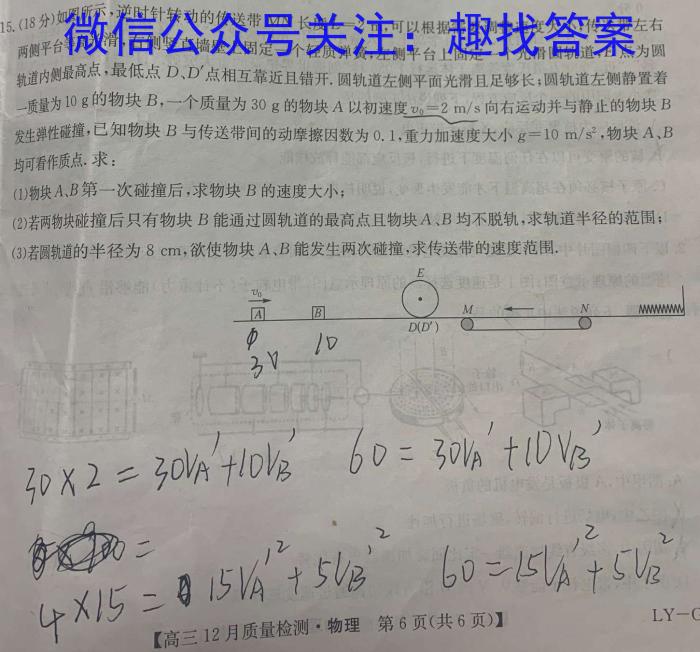 15.(18分)如图所示,逆时针转动的传送带
微信公众号关注：趣找答案
轨道内侧最高点,最低点 D、D′点相互靠近且错开.圆轨道左侧平面光滑且足够长;圆轨道左侧静置着
一质量为 10 g 的物块 B,一个质量为 30 g 的物块 A 以初速度 v₀=2 m/s 向右运动并与静止的物块 B
发生弹性碰撞,已知物块 B 与传送带间的动摩擦因数为 0.1,重力加速度大小 g=10 m/s²,物块 A、B
均可看作质点.求:
(1)物块 A、B 第一次碰撞后,求物块 B 的速度大小;
(2)若两物块碰撞后只有物块 B 能通过圆轨道的最高点且物块 A、B 均不脱轨,求轨道半径的范围;
(3)若圆轨道的半径为 8 cm,欲使物块 A、B 能发生两次碰撞,求传送带的速度范围.
E
v₀
A B M N
D(D′)
30 10
30×2=30VA′+10VB′ 60=30VA′+10VB′
4×15= 15VA′²+5VB′² 60=15VA′²+5VB′²
【高三12月质量检测·物理 第6页(共6页)】 LY-G